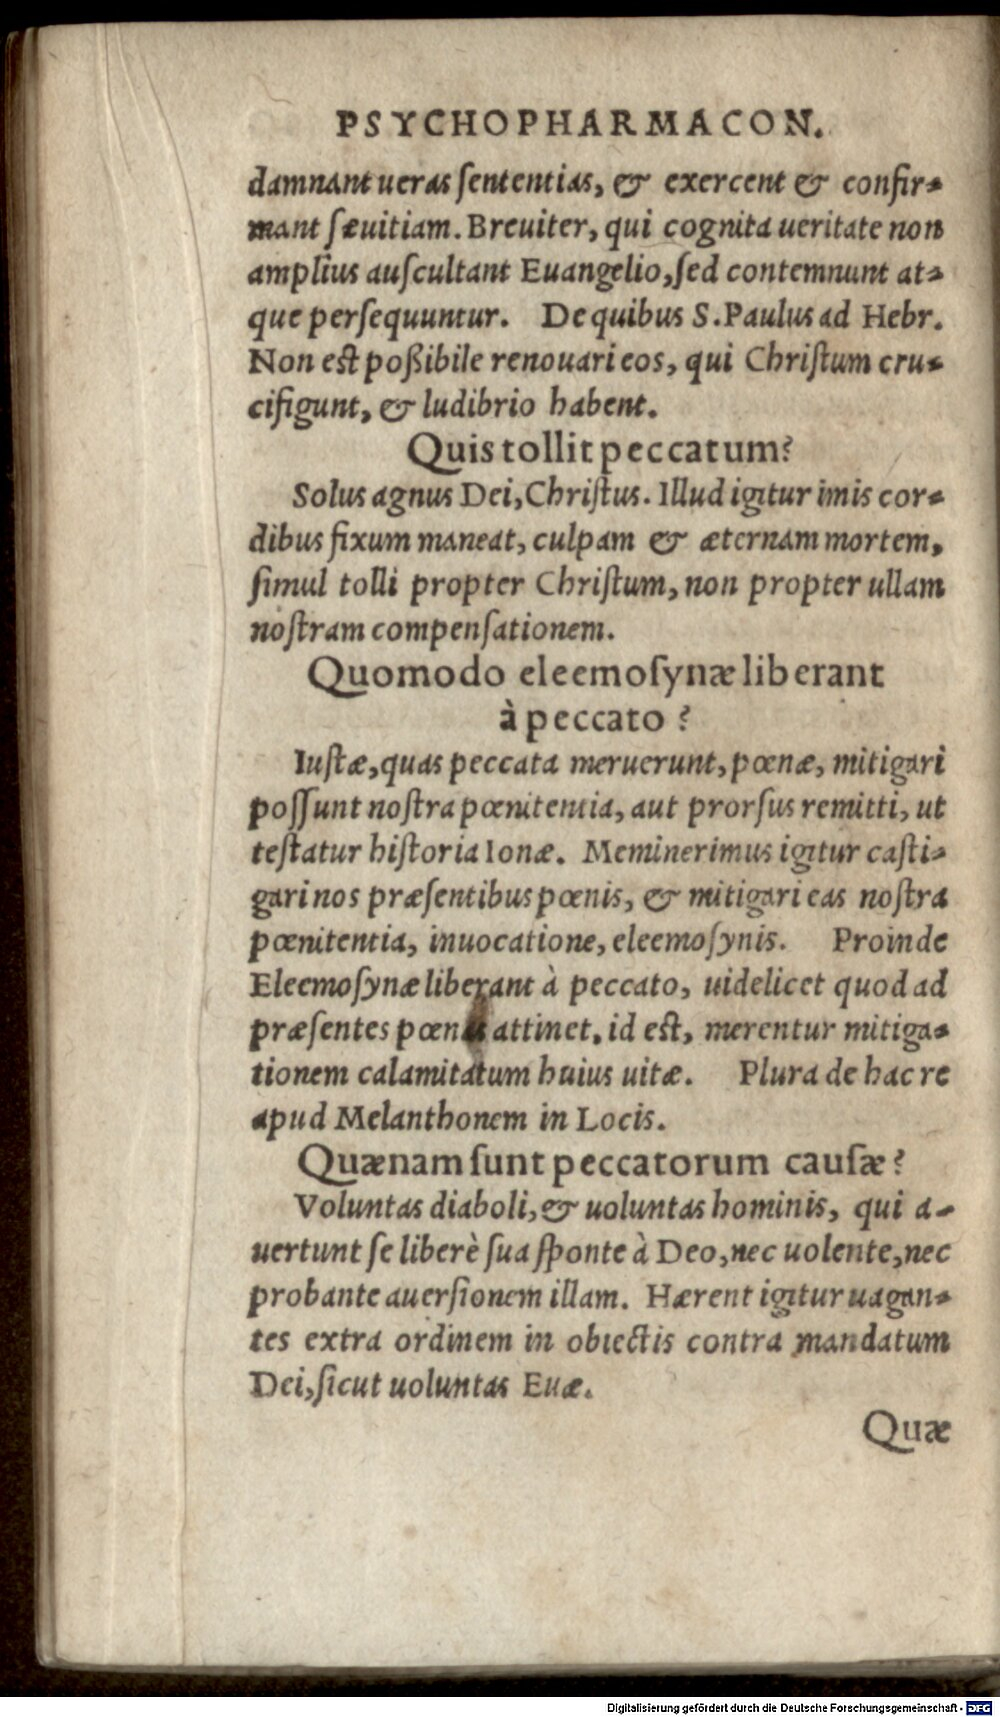 PSYCHOPHARMACON.
damnant ueras ſententias, & exercent & confir-
mant ſæuitiam. Breuiter, qui cognita ueritate non
amplius auſcultant Euangelio, ſed contemnunt at-
que perſequuntur. De quibus S. Paulus ad Hebr.
Non est poßibile renouari eos, qui Chriſtum cru-
cifigunt, & ludibrio habent.
Quis tollit peccatum?
Solus agnus Dei, Chriſtus. Illud igitur imis cor-
dibus fixum maneat, culpam & æternam mortem,
ſimul tolli propter Chriſtum, non propter ullam
noſtram compenſationem.
Quomodo eleemoſynæ liberant
à peccato?
Iuſtæ, quas peccata meruerunt, pœnæ, mitigari
poſſunt noſtra pœnitentia, aut prorſus remitti, ut
teſtatur hiſtoria Ionæ. Meminerimus igitur caſti-
gari nos præſentibus pœnis, & mitigari eas noſtra
pœnitentia, inuocatione, eleemoſynis. Proinde
Eleemoſynæ liberant à peccato, uidelicet quod ad
præſentes attinet, id est, merentur mitiga-
tionem calamitatum huius uitæ. Plura de hac re
apud Melanthonem in Locis.
Quænam ſunt peccatorum cauſæ?
Voluntas diaboli, & uoluntas hominis, qui a-
uertunt ſe liberè ſua ſponte à Deo, nec uolente, nec
probante auerſionem illam. Hærent igitur uagan-
tes extra ordinem in obiectis contra mandatum
Dei, ſicut uoluntas Euæ.
Quæ
Digitalisierung gefördert durch die Deutsche Forschungsgemeinschaft - DFG